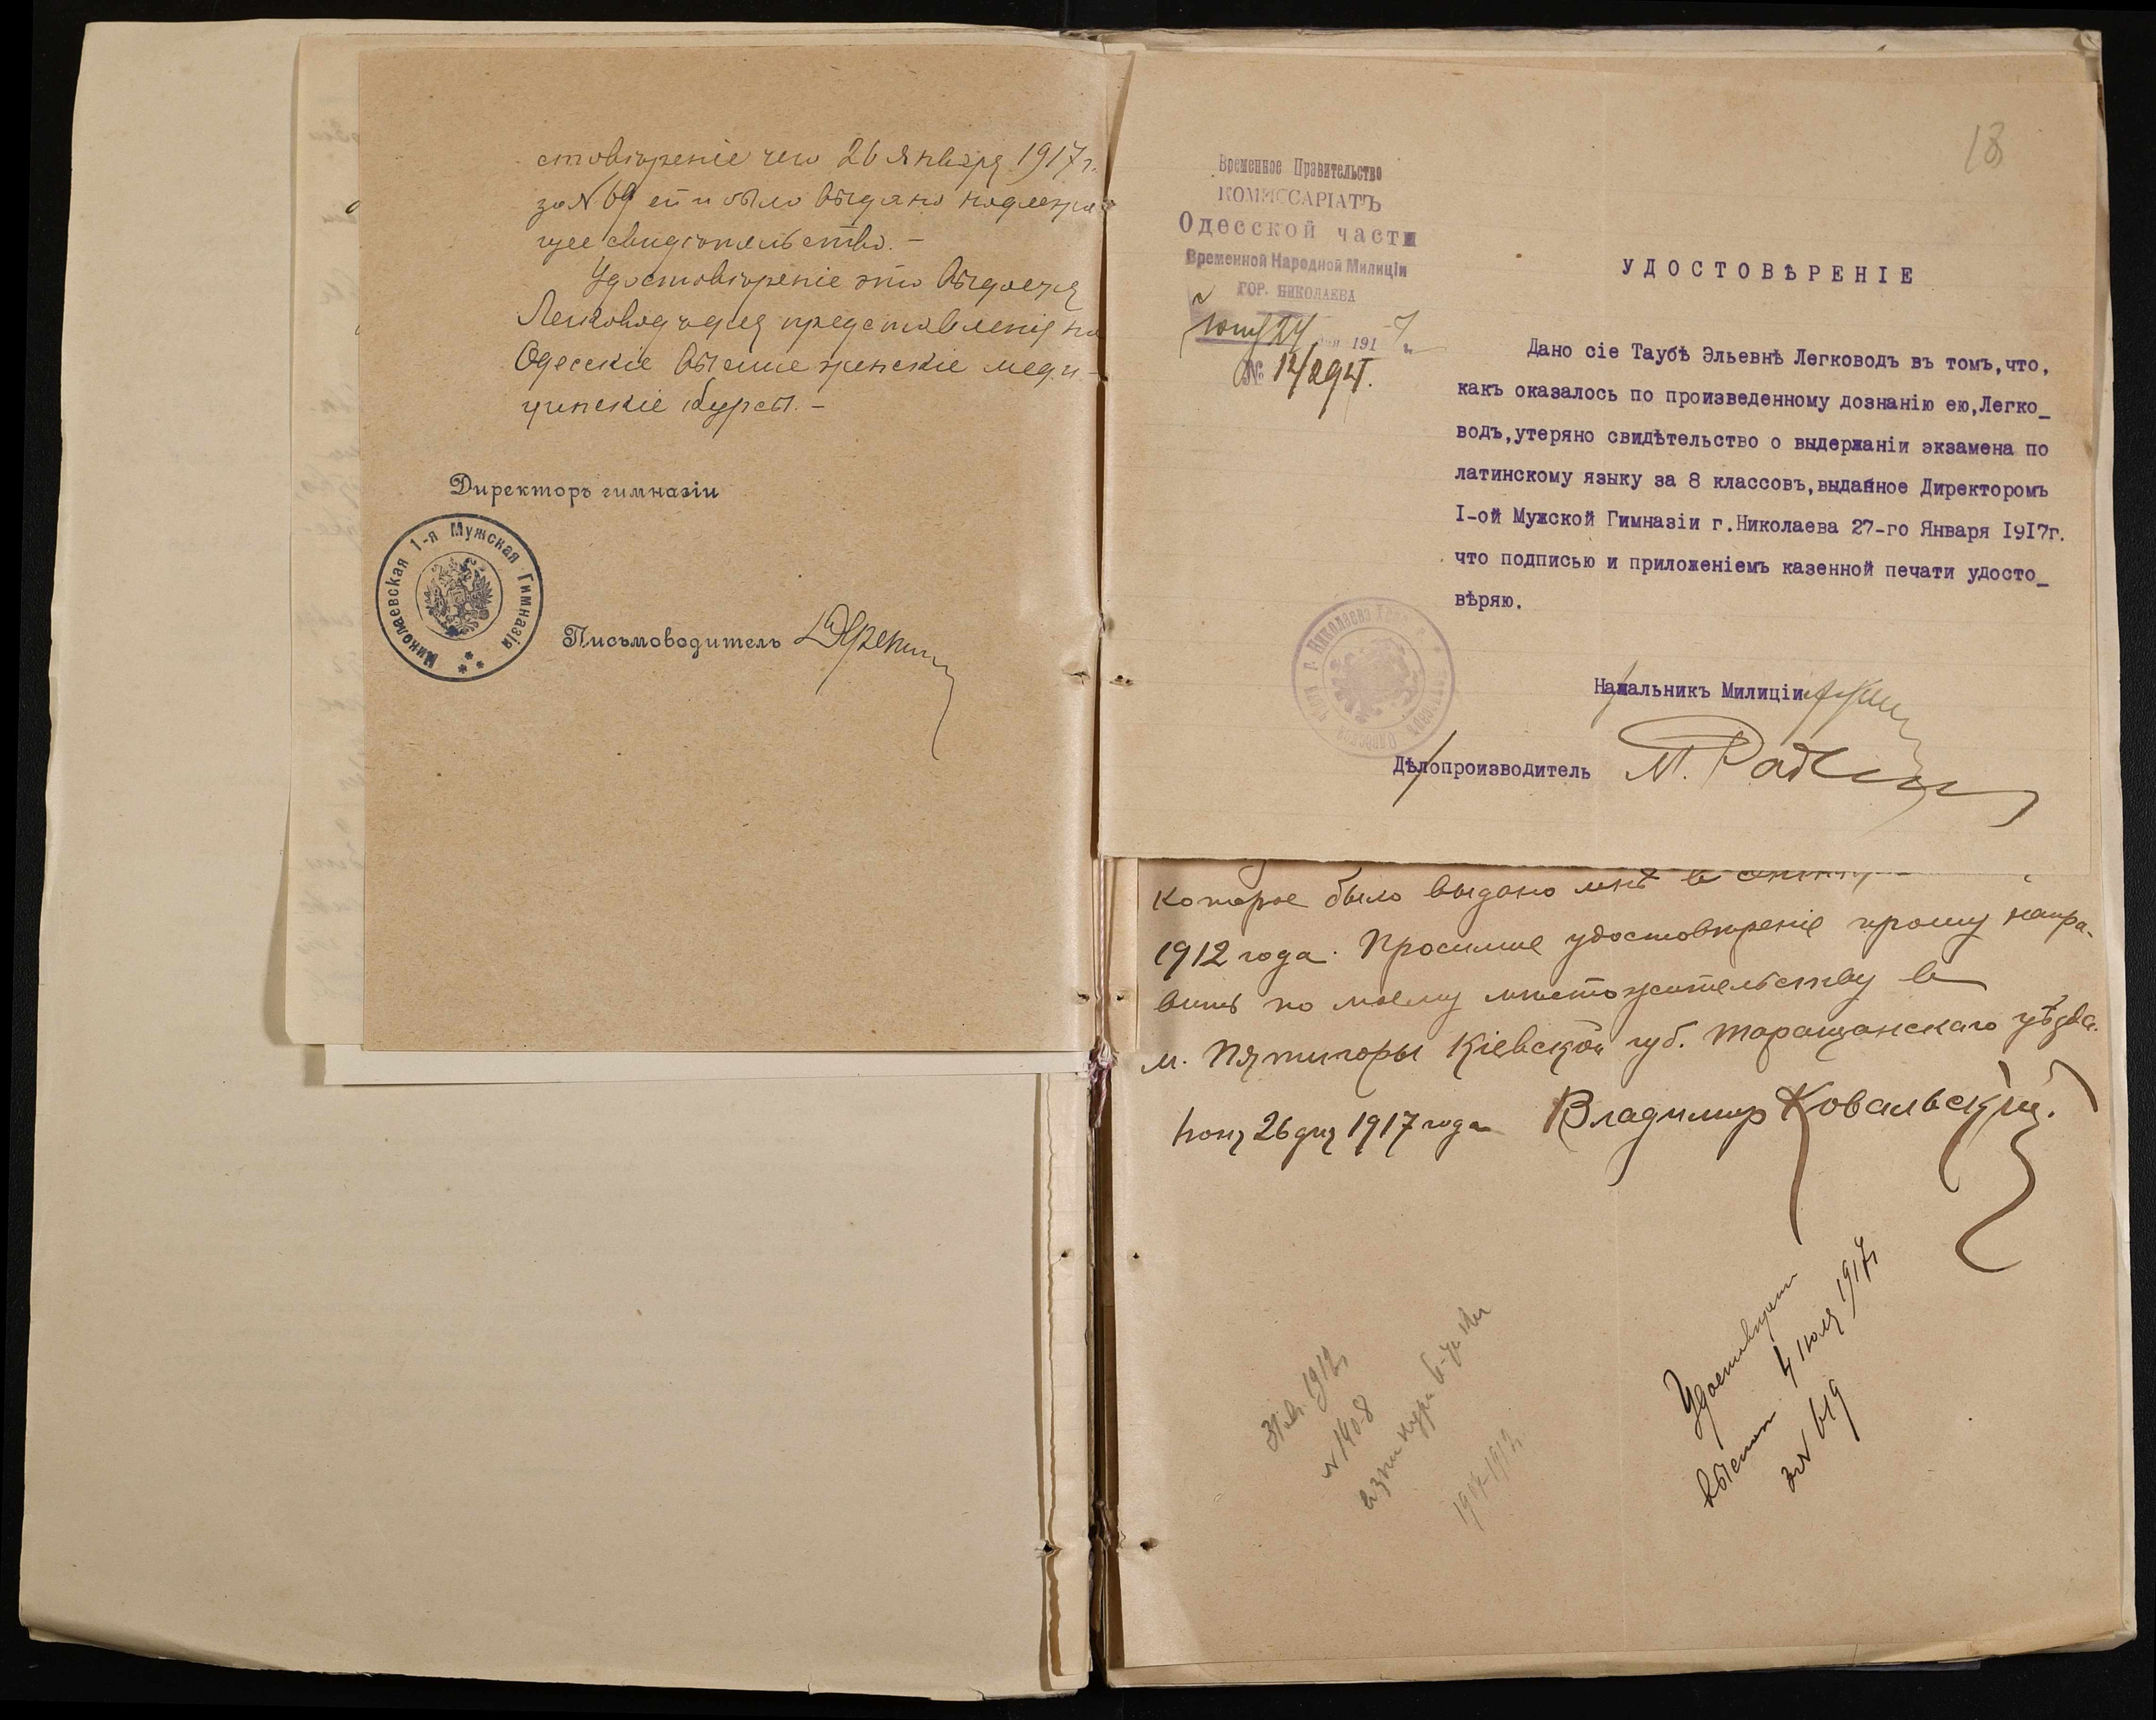 стовѣреніе чего 26 Января 1917 г.
за № 69 ей и было выдано надлежа
щее свидѣтельство. –
Удостовѣреніе это выдается
Легковод для представленія на
Одесскіе высшіе женскіе меди-
цинскіе курсы. –
Директоръ гимназіи
Николаевская 1-я Мужская Гимназія
Письмоводитель
18
Временное Правительство
КОМИССАРІАТЪ
Одесской части
Временной Народной Милиціи
ГОР. НИКОЛАЕВА
24 1917
№ 12/294
УДОСТОВѢРЕНІЕ
Дано сіе Таубѣ Эльевнѣ Легководъ въ томъ,что,
какъ оказалось по произведенному дознанію ею,Легко_
водъ,утеряно свидѣтельство о выдержаніи экзамена по
латинскому языку за 8 классовъ,выданное Директоромъ
I-ой Мужской Гимназіи г.Николаева 27-го Января 1917г.
что подписью и приложеніемъ казенной печати удосто_
вѣряю.
г. Николаева
Начальникъ Милиціи
Дѣлопроизводитель
которое было выдано мнѣ в
1912 года. Просимое удостовѣреніе прошу напра-
вить по моему мѣстожительству в
м. Пятигоры Кіевской губ. Таращанскаго уѣзда.
Іюня 26 дня 1917 года Владимир Ковальскій.
1912
№ 1408
1907-1912
Удостовѣрен
выслан 4 Июля 1917 г
за № 619